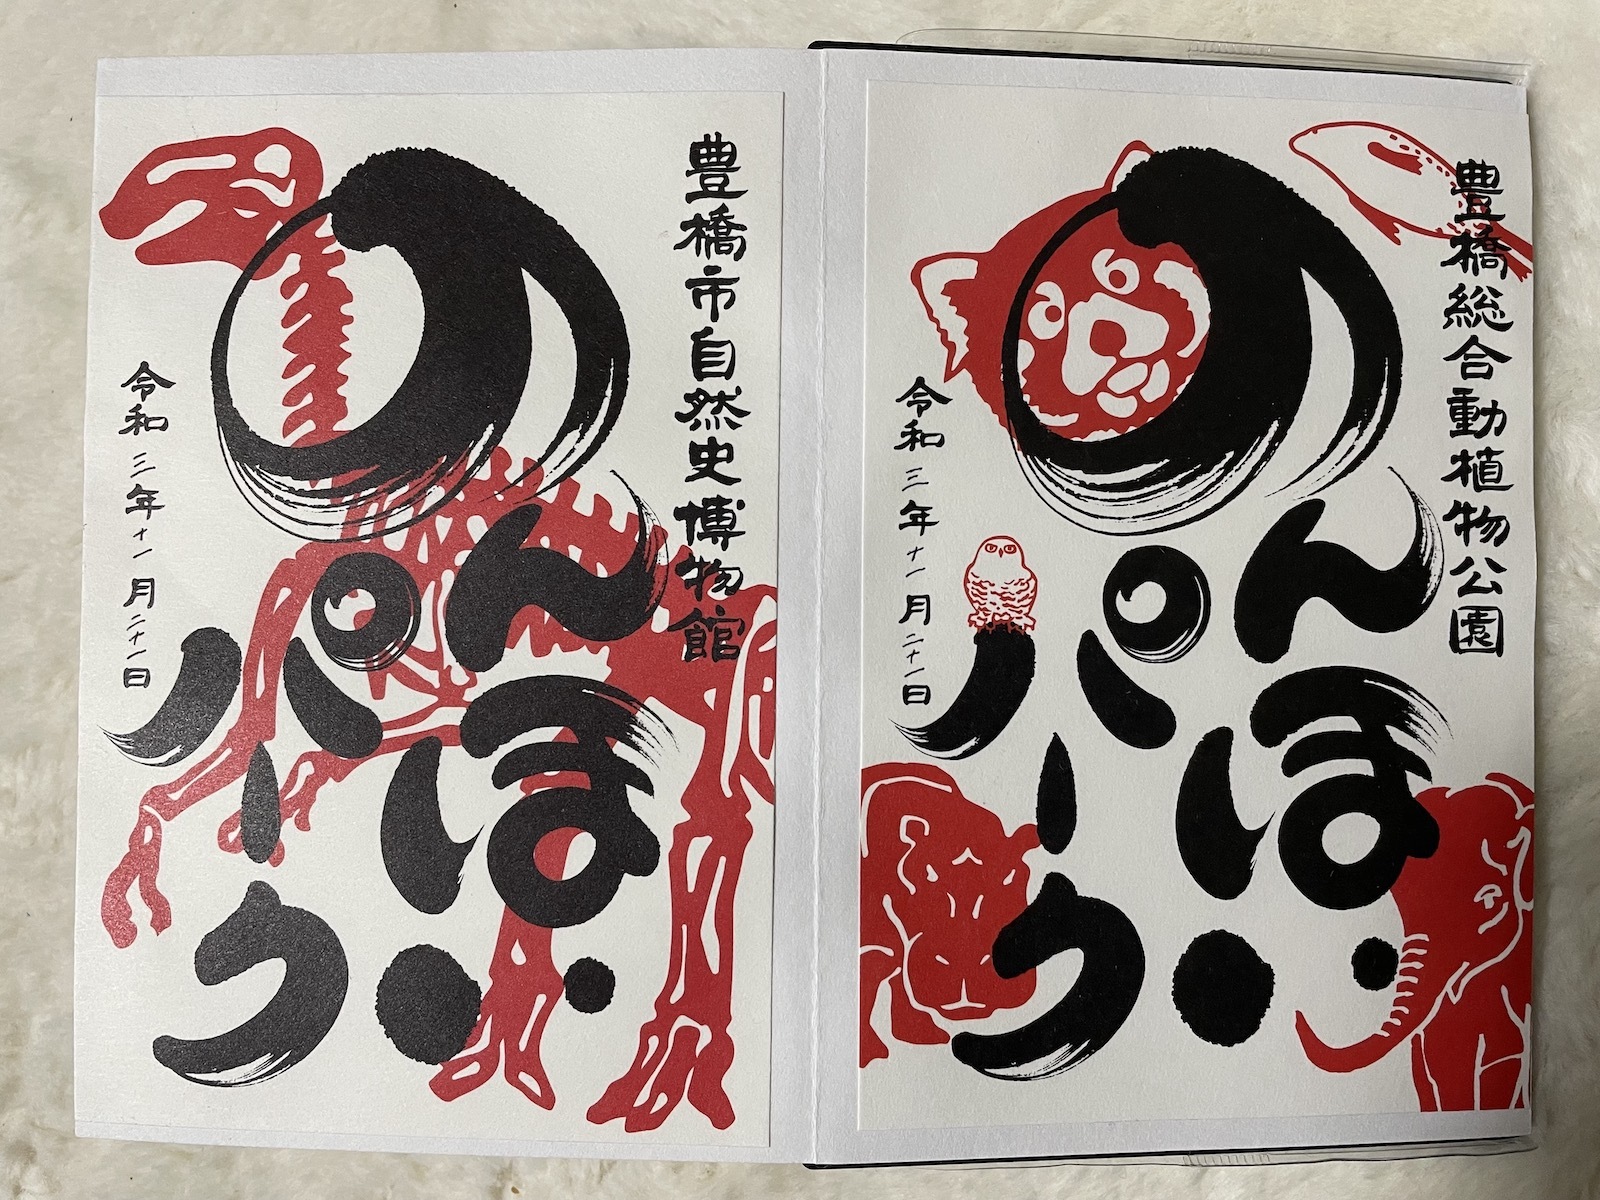 豊橋総合動植物公園
のんほい
パーク
令和三年十一月二十一日
豊橋市自然史博物館
のんほい
パーク
令和三年十一月二十一日